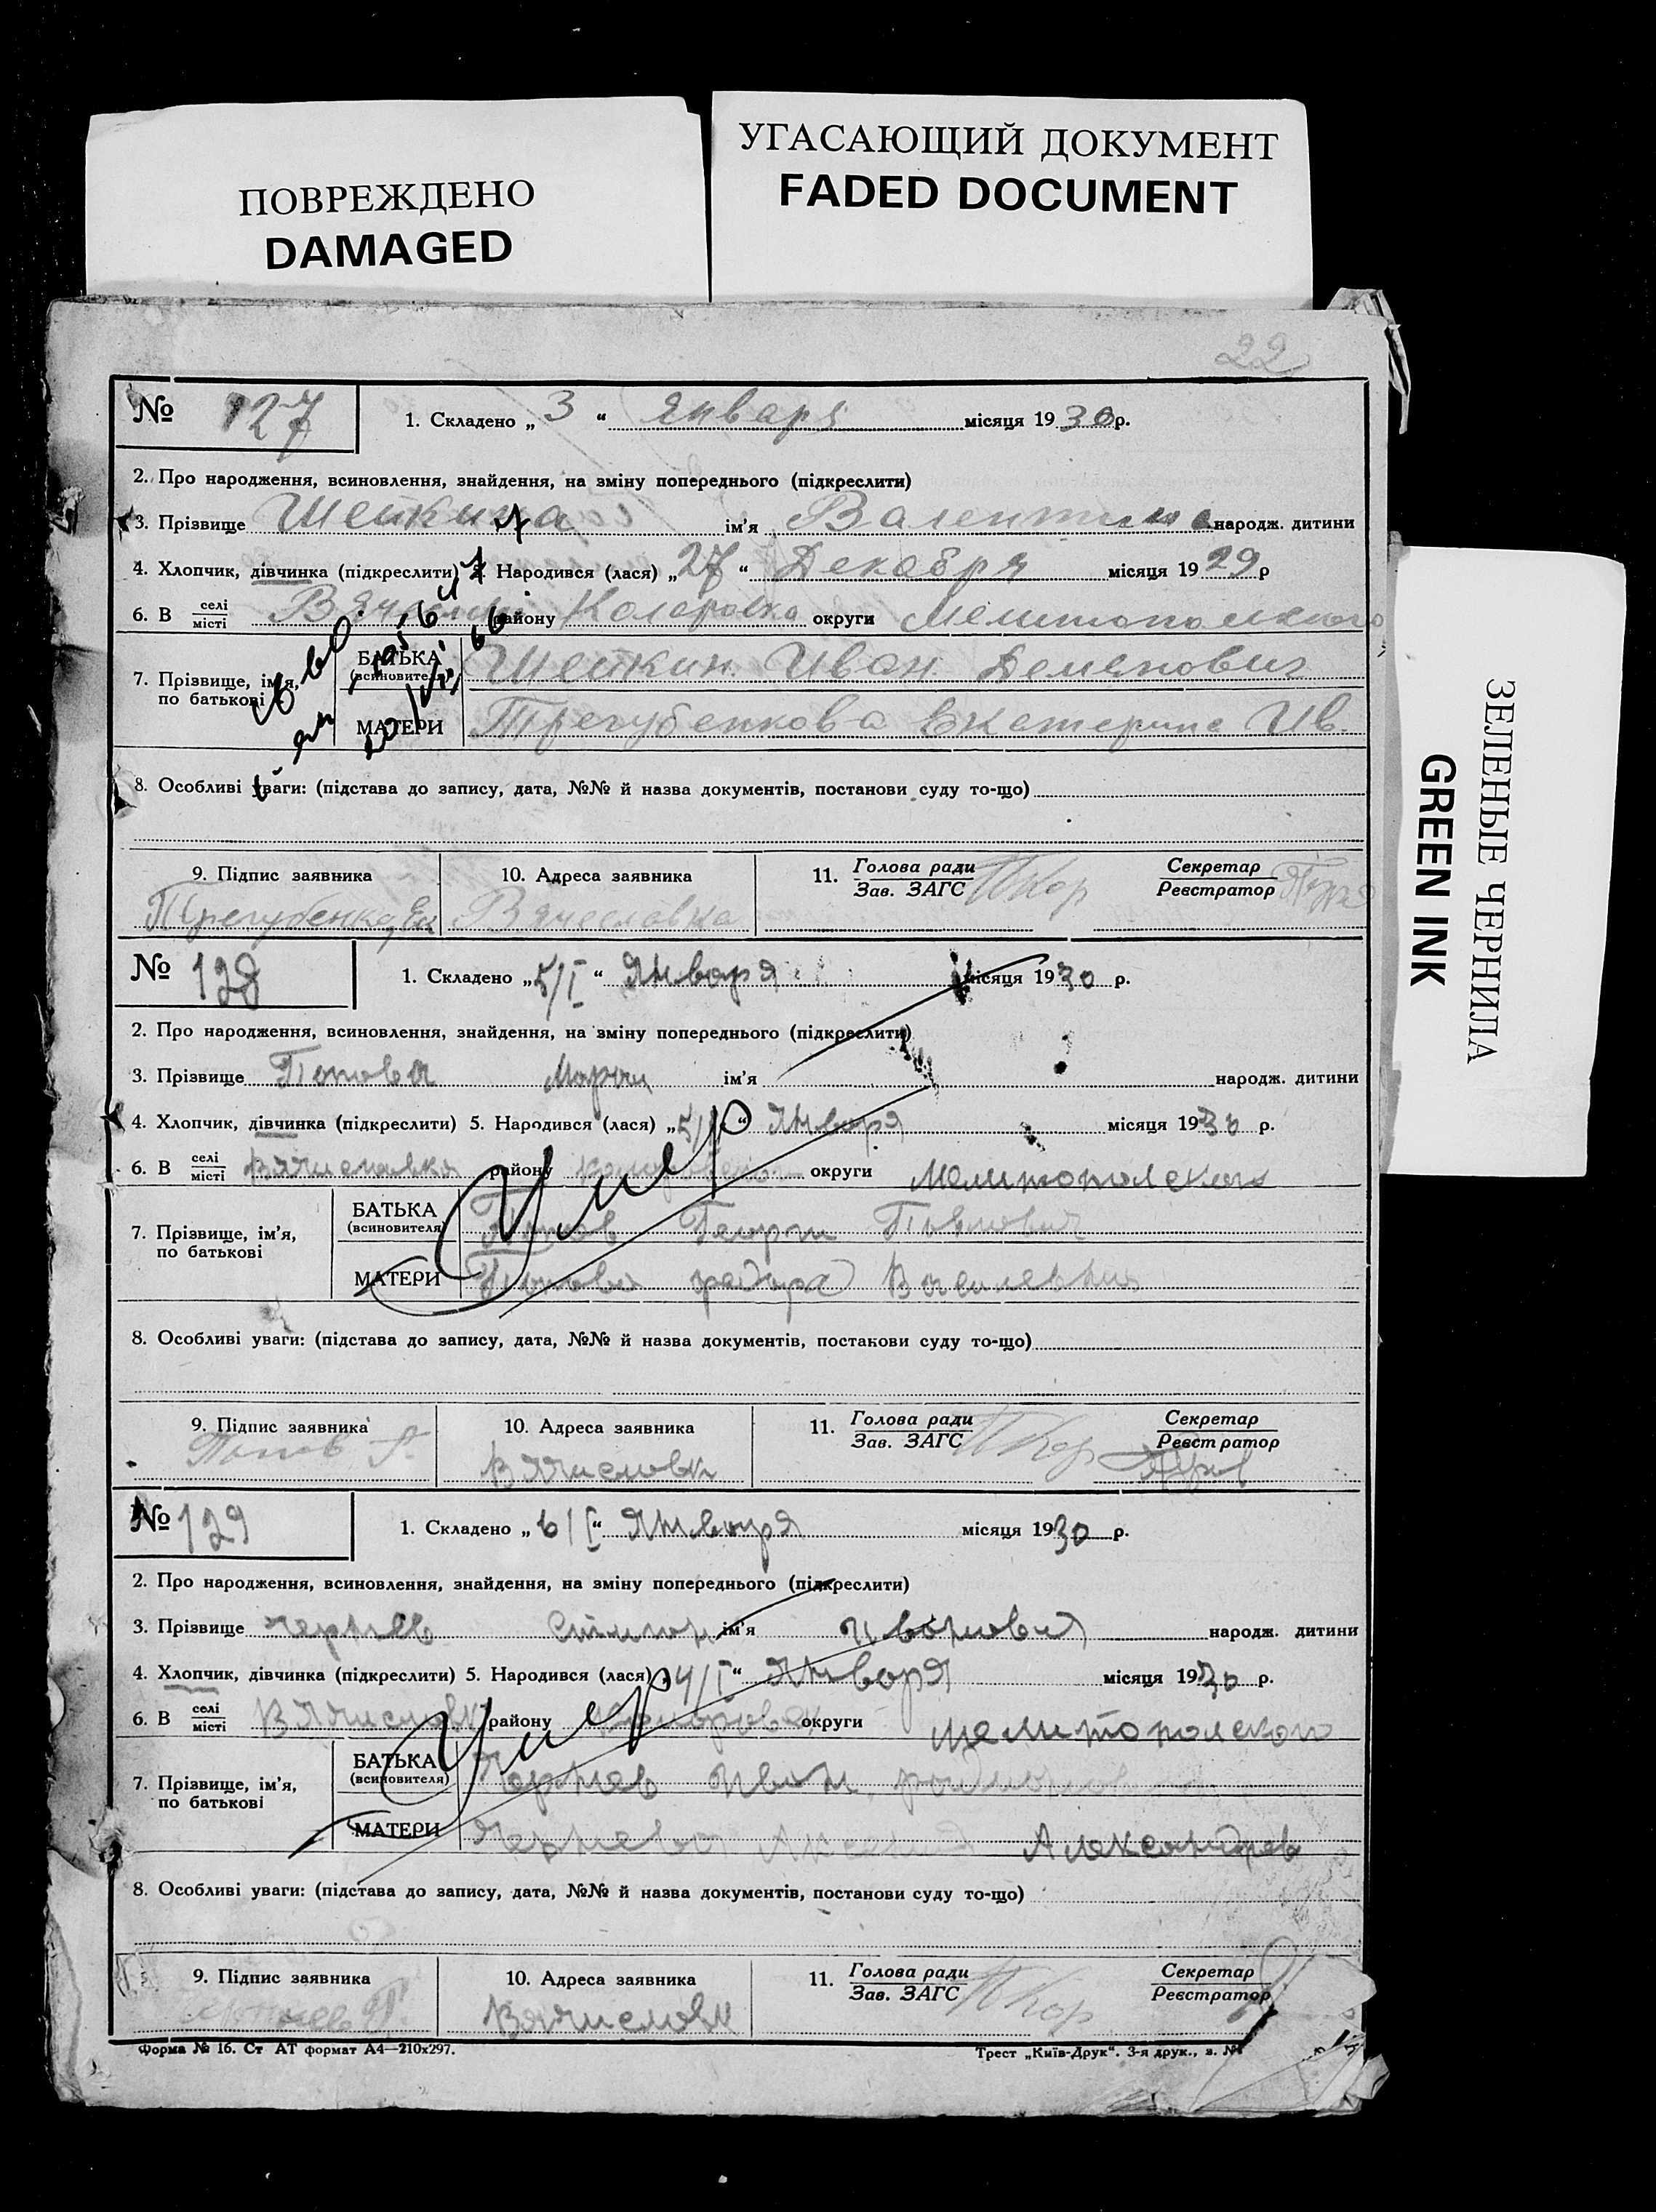 ПОВРЕЖДЕНО
DAMAGED
УГАСАЮЩИЙ ДОКУМЕНТ
FADED DOCUMENT
ЗЕЛЕНЫЕ ЧЕРНИЛА
GREEN INK
22
№ 127 1. Складено „ 3 “ Января місяця 1930 р.
2. Про народження, всиновлення, знайдення, на зміну попереднього (підкреслити)
3. Прізвище Шейкина ім'я Валентина народж. дитини
4. Хлопчик, дівчинка (підкреслити) 5. Народився (лася) „27“ Декабря місяця 1929 р
6. В селі місті району Коларовка округи Мелитопольского
7. Прізвище, ім'я, по батькові
БАТЬКА (всиновителя) Шейкин Иван Демянович
МАТЕРИ Трегубенкова Екатерина Ив.
8. Особливі уваги: (підстава до запису, дата, №№ й назва документів, постанови суду то-що)
9. Підпис заявника 10. Адреса заявника 11. Голова ради Зав. ЗАГС Секретар Реєстратор
Трегубенко, Ек Вячеславка
№ 128 1. Складено „5/I“ Января місяця 1930 р.
2. Про народження, всиновлення, знайдення, на зміну попереднього (підкреслити)
3. Прізвище Попова Мария ім'я народж. дитини
4. Хлопчик, дівчинка (підкреслити) 5. Народився (лася) „5/I“ Января місяця 1930 р.
6. В селі місті Вячиславка району округи Мелитополского
Умер
7. Прізвище, ім'я, по батькові
БАТЬКА (всиновителя) Попов Георги Павлович
МАТЕРИ Попова Василевна
8. Особливі уваги: (підстава до запису, дата, №№ й назва документів, постанови суду то-що)
9. Підпис заявника 10. Адреса заявника 11. Голова ради Зав. ЗАГС Секретар Реєстратор
Попов Г. Вячиславк
№ 129 1. Складено „6/I“ Января місяця 1930 р.
2. Про народження, всиновлення, знайдення, на зміну попереднього (підкреслити)
3. Прізвище Чернев ім'я Иванович народж. дитини
4. Хлопчик, дівчинка (підкреслити) 5. Народився (лася) „4/I“ Января місяця 1930 р.
6. В селі місті Вячиславк району округи Мелитополского
Умер
7. Прізвище, ім'я, по батькові
БАТЬКА (всиновителя) Чернев Иван
МАТЕРИ Чернева Александрев
8. Особливі уваги: (підстава до запису, дата, №№ й назва документів, постанови суду то-що)
9. Підпис заявника 10. Адреса заявника 11. Голова ради Зав. ЗАГС Секретар Реєстратор
Вячиславк
Форма № 16. Ст АТ формат А4—210х297. Трест „Київ-Друк“. 3-я друк., з. №